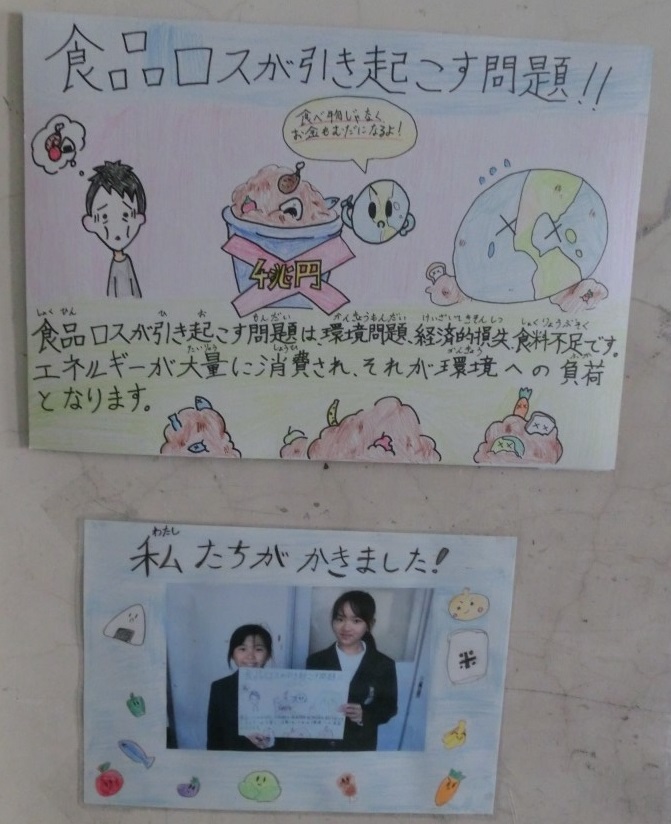 食品ロスが引き起こす問題!!
食べ物じゃなく
お金もむだになるよ!
4兆円
食品ロスが引き起こす問題は、環境問題、経済的損失、食料不足です。
エネルギーが大量に消費され、それが環境への負荷
となります。
わたし
私たちがかきました!
米
食品ロスが引き起こす問題